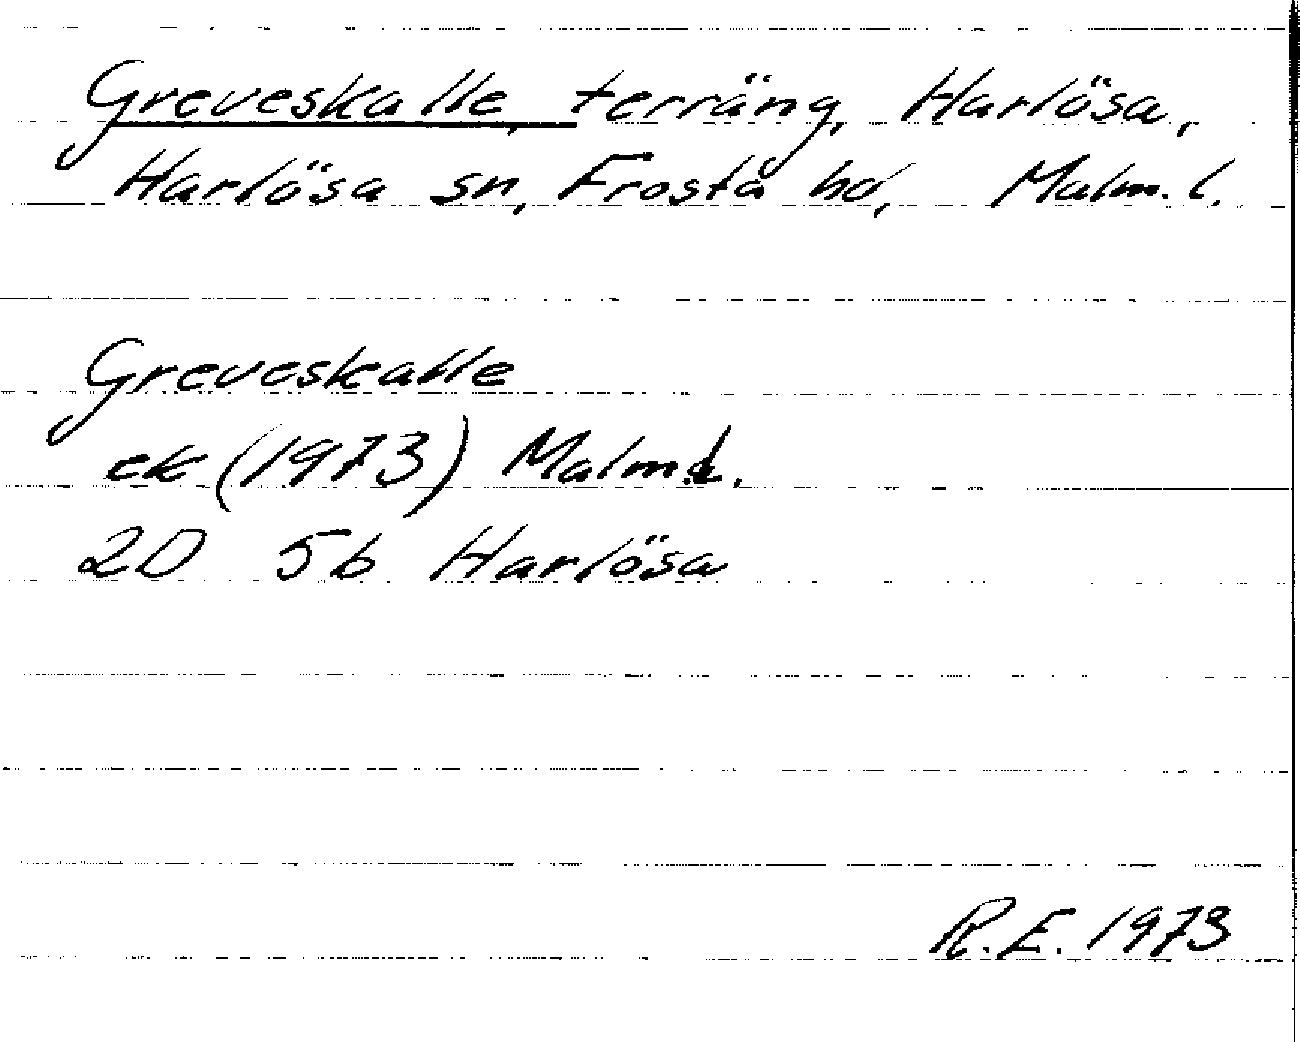 Greveskalle, terräng, Harlösa,
Harlösa sn, Frosta hd, Malm. l.
Greveskalle
ek (1973) Malm.l.
2D 5b Harlösa
R.E. 1973